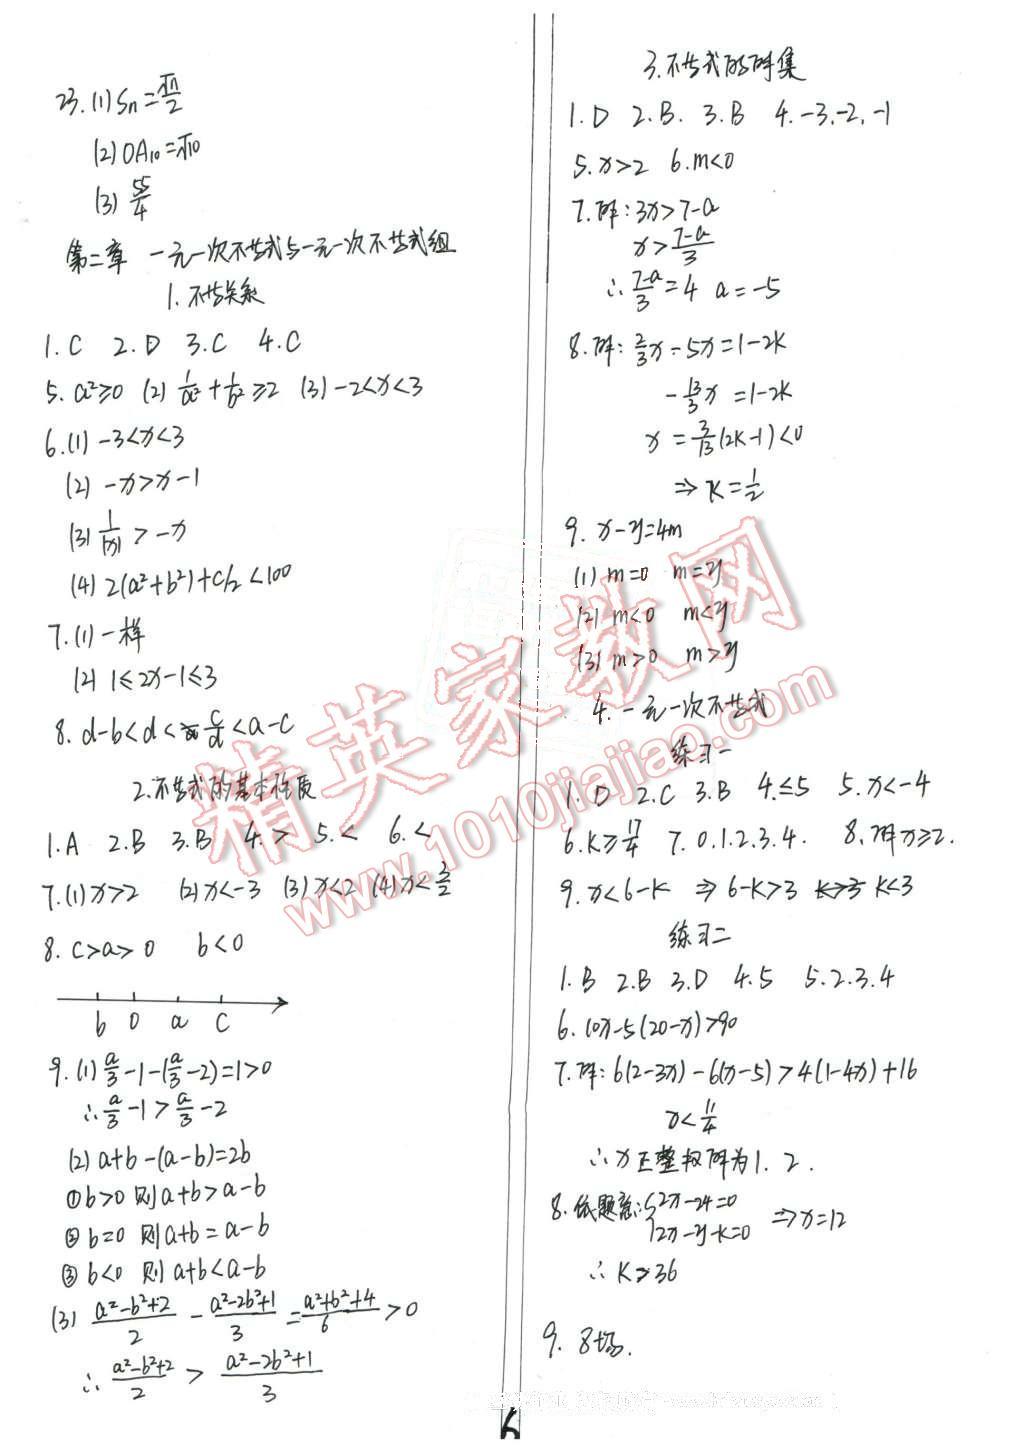 23.(1) Sn=√n/2
(2) OA₁₀=√10
(3) 55/4
第二章 一元一次不等式与一元一次不等式组
1. 不等关系
1.C 2.D 3.C 4.C
5. a²≥0 (2) 1/a²+1/b²≥2 (3) -2<x<3
6.(1) -3<x<3
(2) -x>x-1
(3) 1/|x| > -x
(4) 2(a²+b²)+c/2<100
7.(1) 一样
(2) 1≤2x-1≤3
8. d-b<d< c/d <a-c
2.不等式的基本性质
1.A 2.B 3.B 4.> 5.< 6.<
7.(1) x>2 (2) x<-3 (3) x<2 (4) x<3/2
8. c>a>0 b<0
b 0 a c
9.(1) a/3-1-(a/3-2)=1>0
∴ a/3-1>a/3-2
(2) a+b-(a-b)=2b
①b>0 则a+b>a-b
②b=0 则a+b=a-b
③b<0 则a+b<a-b
(3) (a²-b²+2)/2 - (a²-2b²+1)/3 = (a²+b²+4)/6 >0
∴ (a²-b²+2)/2 > (a²-2b²+1)/3
3.不等式的解集
1.D 2.B. 3.B 4.-3,-2,-1
5. x>2 6. m<0
7.解:3x>7-a
x>(7-a)/3
∴ (7-a)/3=4 a=-5
8.解: 2/3x-5x=1-2k
-13/3x=1-2k
x=3/13(2k-1)<0
⇒ k=1/2
9. x-y=4m
(1) m=0 m=y
(2) m<0 m<y
(3) m>0 m>y
4.一元一次不等式
练习一
1.D 2.C 3.B 4.≤5 5.x<-4
6.k≥17/4 7.0.1.2.3.4. 8.解x≥2.
9. x<6-k ⇒ 6-k>3 k<3
练习二
1.B 2.B 3.D 4.5 5.2.3.4
6. 10x-5(20-x)>90
7.解:6(2-3x)-6(x-5)>4(1-4x)+16
x<11/4
∴x正整数解为1.2.
8.依题意:{2x-24=0
2x-y-k=0 ⇒x=12
∴ k>36
9. 8场.
6
精英家教网
www.1010jiajiao.com